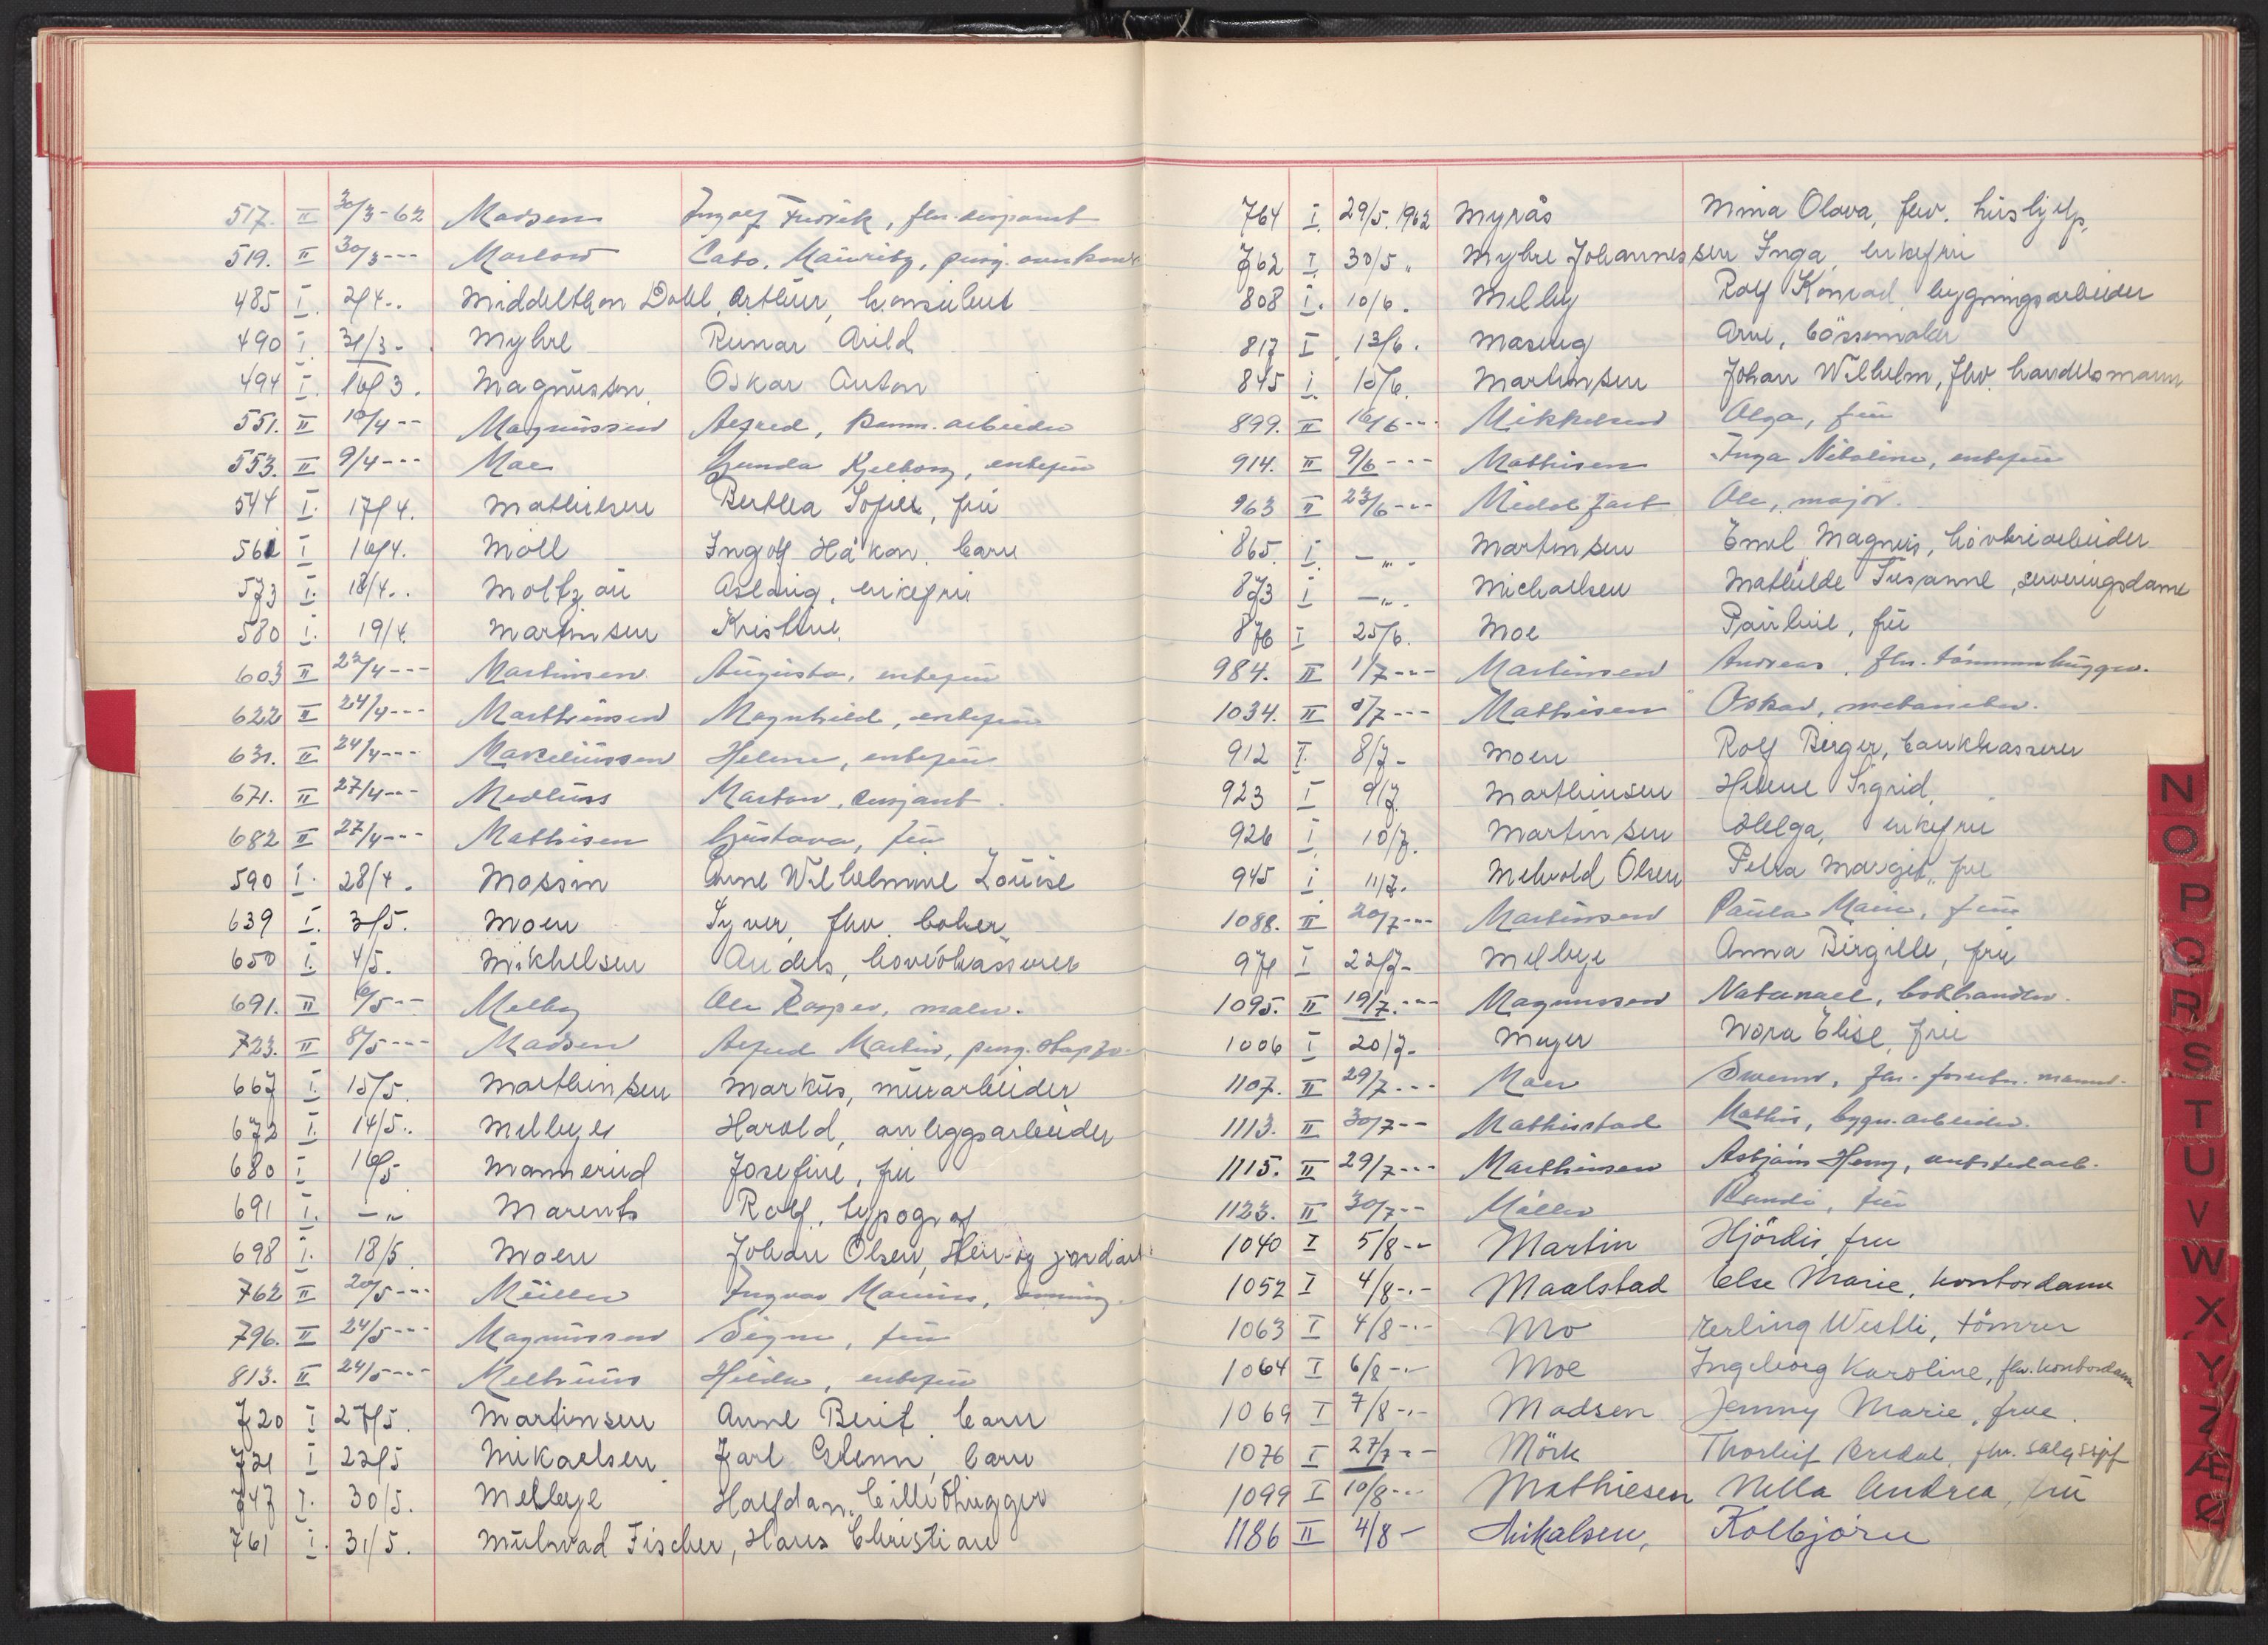 517. II 30/3-62 Madsen Ingolf Fredrik, fhv. disponent
519. II 30/3--- Marlow Cato. Mauritz, pens.
485 I. 2/4.. Middelthon Dahl, Arthur, konsulent
490 I. 31/3- Myhre Runar Arild
494 I. 16/3. Magnusson. Oskar Anton
551. II 10/4-- Magnussen Alfred, komm. arbeider
553. II 9/4--- Moe Gunda Kjelborg, enkefru
544 I. 17/4. Mathiesen Berthea Sofie, frü
561 I 16/4. Moll Ingolf Håkon. barn
573 I. 18/4.. Moltzau Aslaug, enkefrü
580 I. 19/4. Martinsen Kristine.
603 II 22/4--- Martinsen Augusta, enkefrü
622 II 24/4--- Marthinsen Magnhild, enkefrü
631. II 24/4--- Marceliussen Helene, enkefrü
671. II 27/4--- Medhus Marton, sersjant.
682 II 27/4--- Mathisen Gustava, frü
590 I. 28/4. Massin Anne Wilhelmine Louise
639 I. 3/5. Moen Syver, fhv. baker
650 I. 4/5. Mikkelsen Anders, hovedkasserer
691. II 6/5-- Melby Ole Kasper, maler.
723. II 8/5--- Madsen Alfred Martin, pens.
667 I. 15/5. Marthinsen Markus, mürarbeider
672 I. 14/5.. Melbye Harald, anleggsarbeider
680 I 16/5 Mannerud Josefine, frü
691 I. -"- Marents Rolf, typograf
698 I. 18/5. Moen Johan Olsen,
762 II 20/5--- Müller Ingvar Marius,
796. II 24/5--- Magnussen Signe, frü
813. II 24/5--- Melhuus Hilda, enkefrü
720 I 27/5. Martinsen Anne Berit, barn
721 I 22/5 Mikaelsen Jarl Glenn, barn
747 I. 30/5. Melbye Halfdan, billedhugger
761 I. 31/5. Mulvad Fischer, Hans Christian
764 I. 29/5.1962 Myrås Mina Olava, fhv. hüshjelp,
762 I. 30/5" Myhre Johannessen Inga, enkefrü
808 I. 10/6. Melby Rolf Konrad, bygningsarbeider
817 I 13/6. Maseng Arne, bössemaker
845 I. 15/6. Martinsen Johan Wilhelm, fhv. handelsmann
899. II 16/6--- Mikkelsen Olga, frü
914. II 9/6--- Mathisen Inga Nikoline, enkefrü
963 II 23/6--- Middelfart Ole, major.
865. I. -"- Martinsen Emil Magnus, hövleriarbeider
873 I -"- Michaelsen Mathilde Susanne, serveringsdame
876 I 25/6. Moe Pauline, frü
984. II 1/7--- Martinsen Andreas, fhv. tömmerhugger.
1034. II 8/7--- Mathisen Oskar, mekaniker.
912 I. 8/7- Moen Rolf Birger, bankkasserer
923 I 9/7 Marthinsen Helene Sigrid,
926 I. 10/7. Martinsen Helga, enkefrü
945 I 11/7. Mehvold Olsen Petra Margit, frü
1088. II 20/7--- Martinsen Paula Marie, frü
971 I 22/7- Melbye Anna Birgitte, frü
1095. II 19/7.--- Magnussen Natanael, bokhandler.
1006 I 20/7- Meyer Nora Elise, frü
1107. II 29/7--- Moen
1113. II 30/7-- Mathisstad Mathis, bygn. arbeider.
1115. II 29/7--- Marthinsen Asbjörn Henry,
1123. II 30/7-- Möller Randi, frü
1040 I 5/8-- Martin Hjördis, fru
1052 I 4/8-.- Maalstad Else Marie, kontordame
1063 I 4/8-.- Mo Erling Westli, tömrer
1064 I 6/8-- Moe Ingeborg Karoline, fhv. kontordame
1069 I 7/8-.- Madsen Jenny Marie, frue.
1076 I 27/7-- Mörk Thorleif Bredal, fhv. salgssjef
1099 I 10/8--- Mathiesen Nella Andrea, frü
1186 II 4/8- Mikalsen, Kolbjörn
N
O
P
Q
R
S
T
U
V
W
X
Y
Z
Æ
Ø